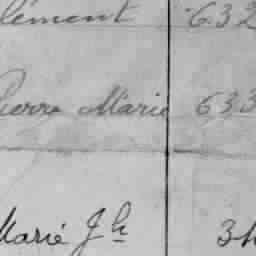 lément 632
Pierre Marie 633
Marié Jh